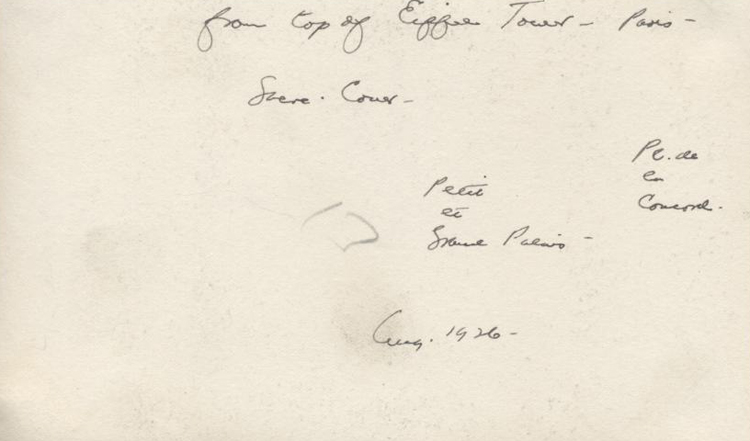 from top of Eiffel Tower - Paris -
Sacre. Couer -
Pl. de
la
Concord.
Petit
et
Grand Palais -
Aug. 1926 -